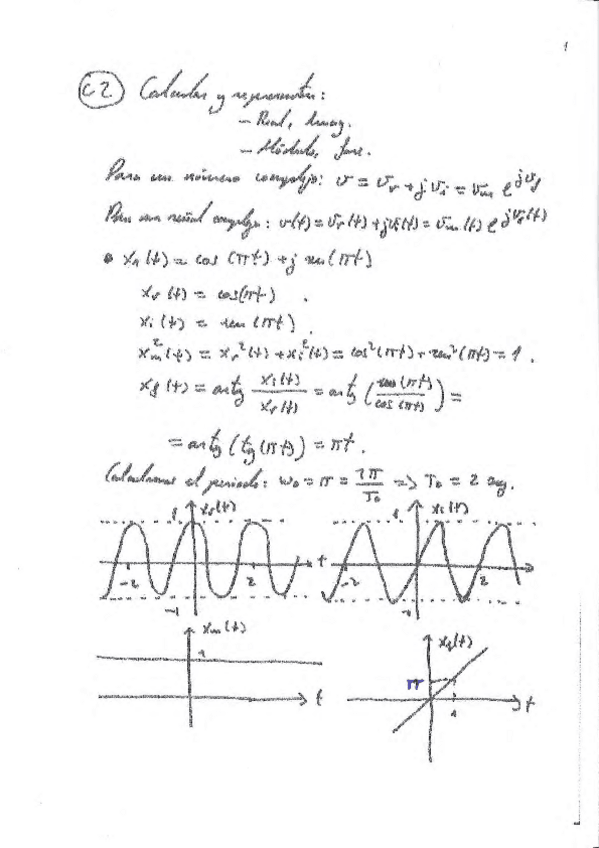 1
C2 Calcular y representar:
- Real, Imag.
- Módulo, fase.
Para un número complejo: v = v_r + j v_i = v_m e^{j v_f}
Para una señal compleja: v(t) = v_r(t) + j v_i(t) = v_m(t) e^{j v_f(t)}
• x_1(t) = cos(πt) + j sen(πt)
x_r(t) = cos(πt).
x_i(t) = sen(πt).
x_m^2(t) = x_r^2(t) + x_i^2(t) = cos^2(πt) + sen^2(πt) = 1.
x_f(t) = arctg x_i(t)/x_r(t) = arctg (sen(πt)/cos(πt)) =
= arctg (tg(πt)) = πt.
Calculamos el periodo: ω_0 = π = 2π/T_0 => T_0 = 2 seg.
1 x_r(t) 1 x_i(t)
-2 2 t -2 2
-1 -1
x_m(t) x_f(t)
1 π
t 1 t